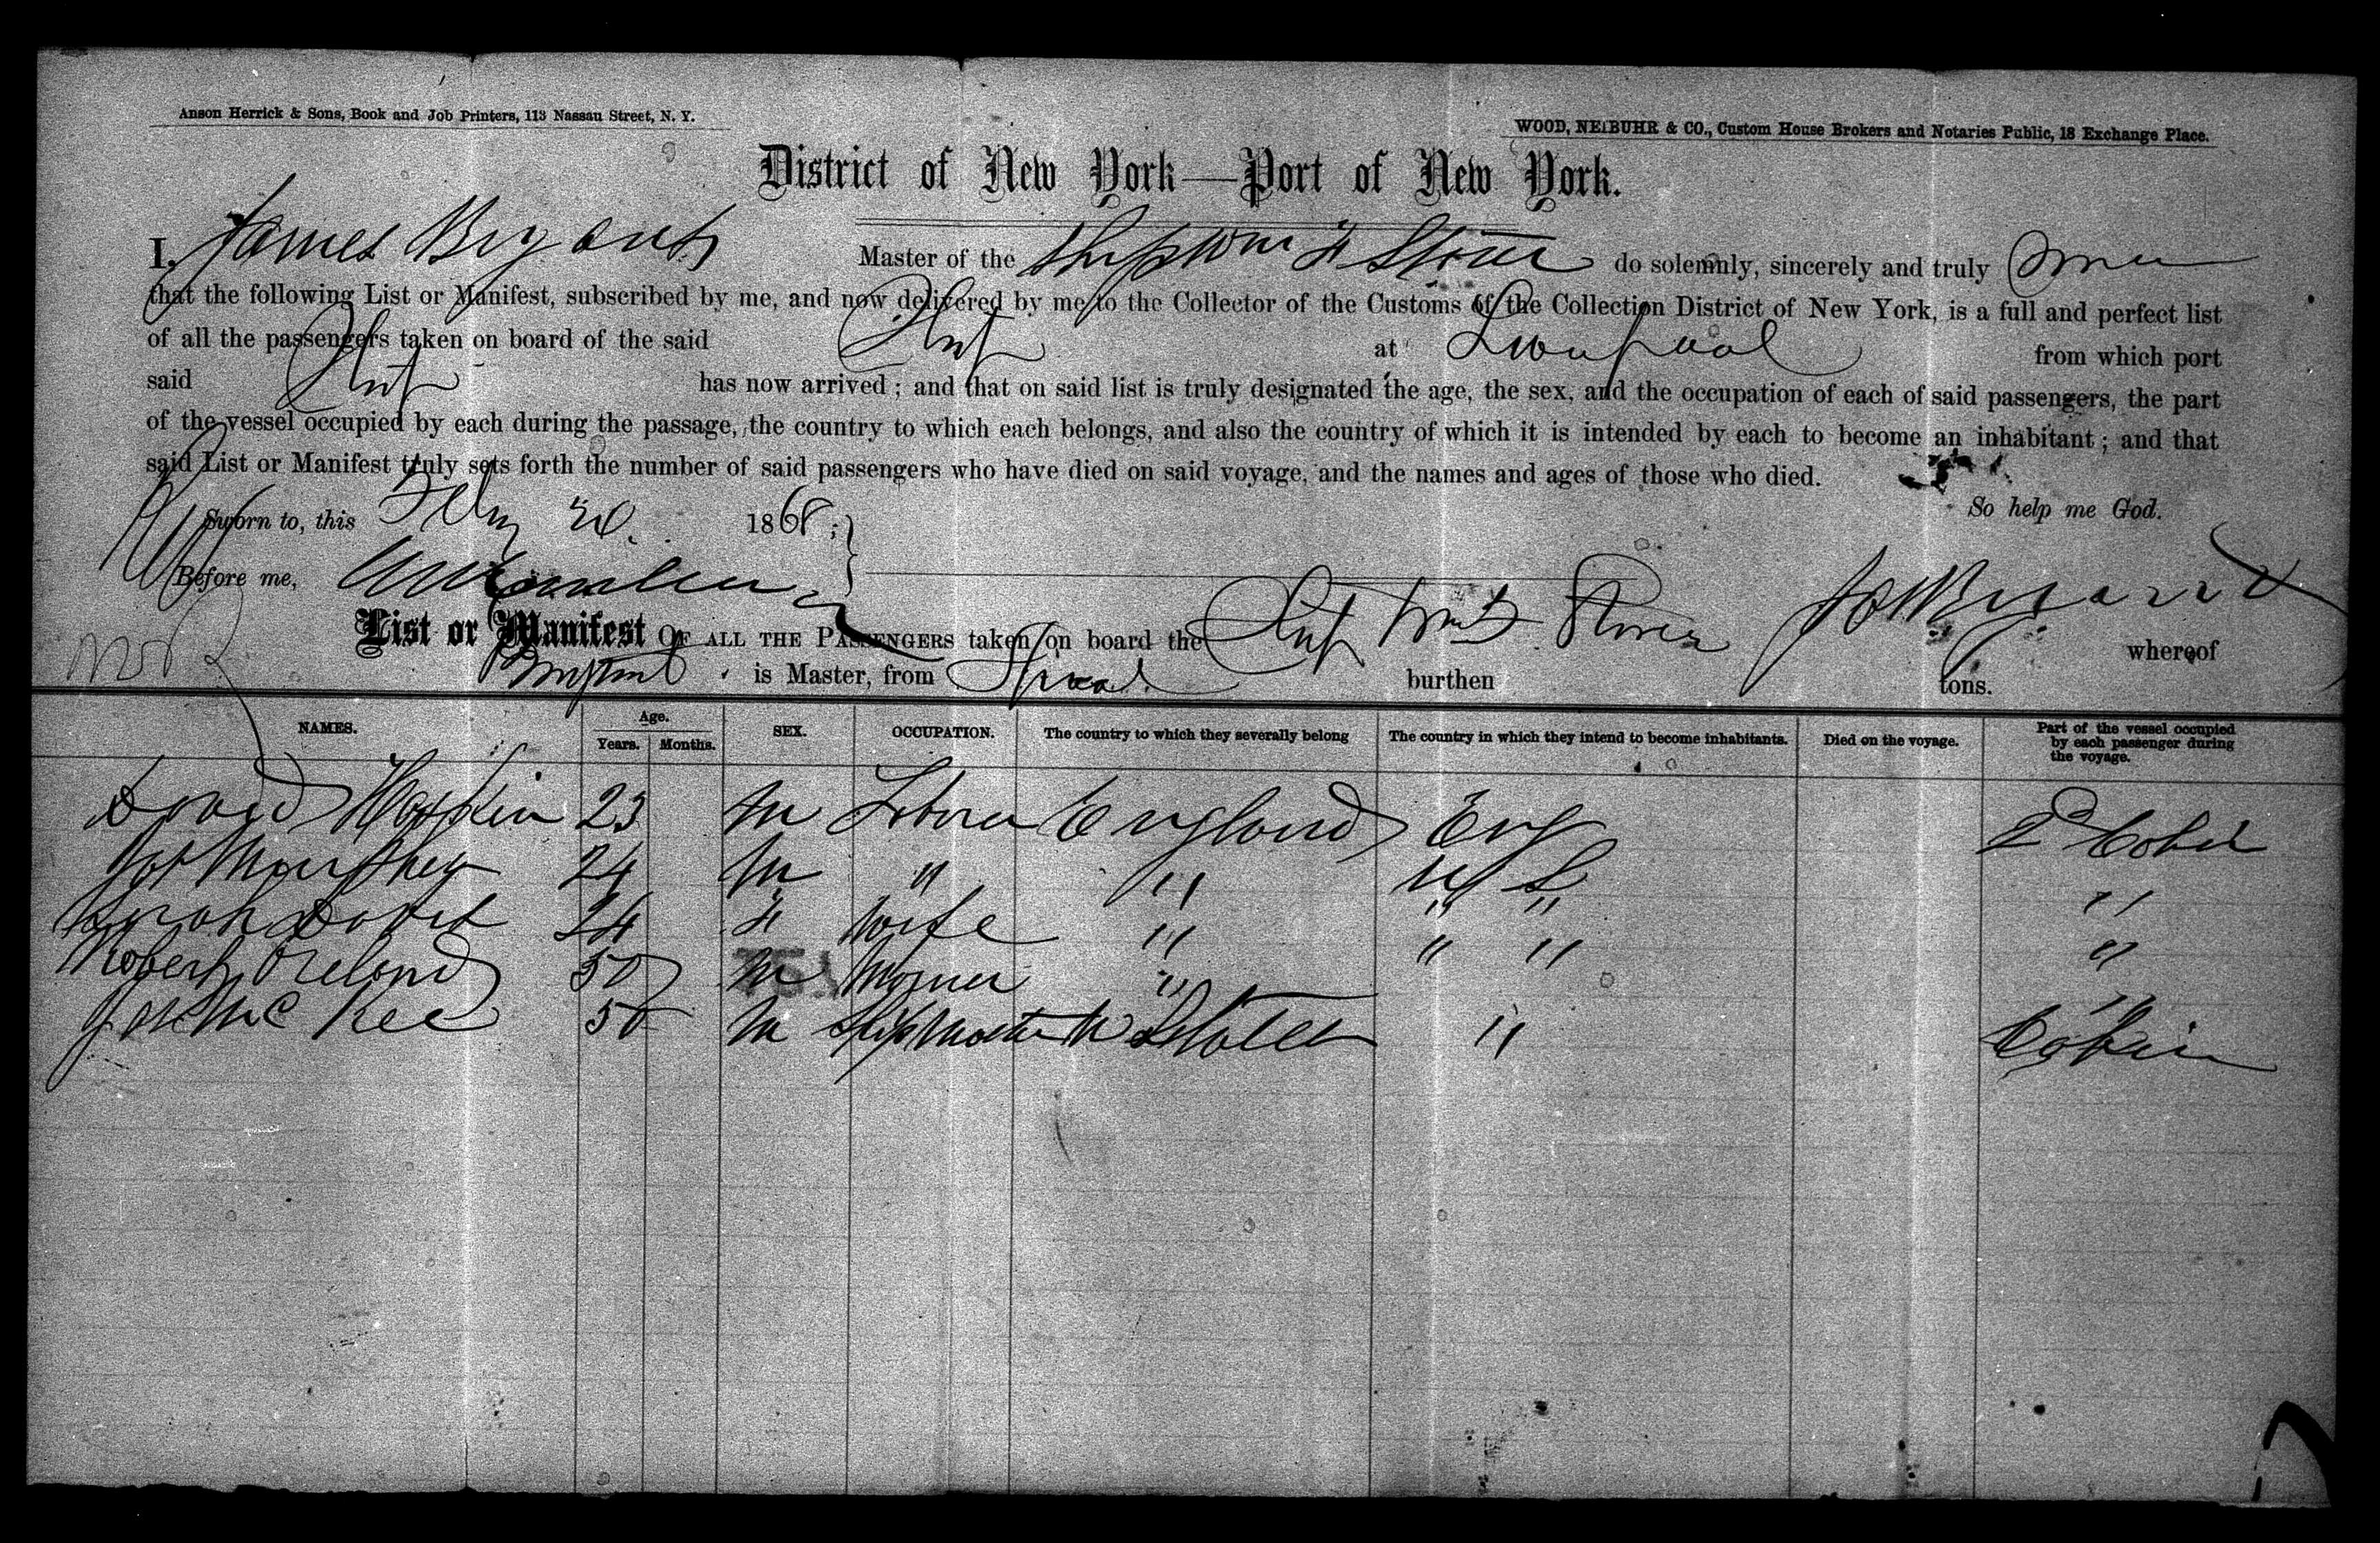 Anson Herrick & Sons, Book and Job Printers, 113 Nassau Street, N. Y.
WOOD, NEIBUHR & CO., Custom House Brokers and Notaries Public, 18 Exchange Place.
District of New York—Port of New York.
I, James Bryant Master of the Ship Wm F Storer do solemnly, sincerely and truly swear
that the following List or Manifest, subscribed by me, and now delivered by me to the Collector of the Customs of the Collection District of New York, is a full and perfect list
of all the passengers taken on board of the said Ship at Liverpool from which port
said Ship has now arrived; and that on said list is truly designated the age, the sex, and the occupation of each of said passengers, the part
of the vessel occupied by each during the passage, the country to which each belongs, and also the country of which it is intended by each to become an inhabitant; and that
said List or Manifest truly sets forth the number of said passengers who have died on said voyage, and the names and ages of those who died.
So help me God.
Sworn to, this Feby 20 1868;
Before me,
Jas Bryant
List or Manifest OF ALL THE PASSENGERS taken on board the Ship Wm F Storer whereof
is Master, from Lpool burthen tons.
NAMES. Age. Years. Months. SEX. OCCUPATION. The country to which they severally belong The country in which they intend to become inhabitants. Died on the voyage. Part of the vessel occupied by each passenger during the voyage.
David Hopkin 23 M Laborer England Eng 2d Cabin
Jas Murphey 24 M " " U S "
Sarah David 24 F Wife " " " "
Robert Ireland 50 M " " " "
Jas McKee 50 M Ship Master U States " Cabin